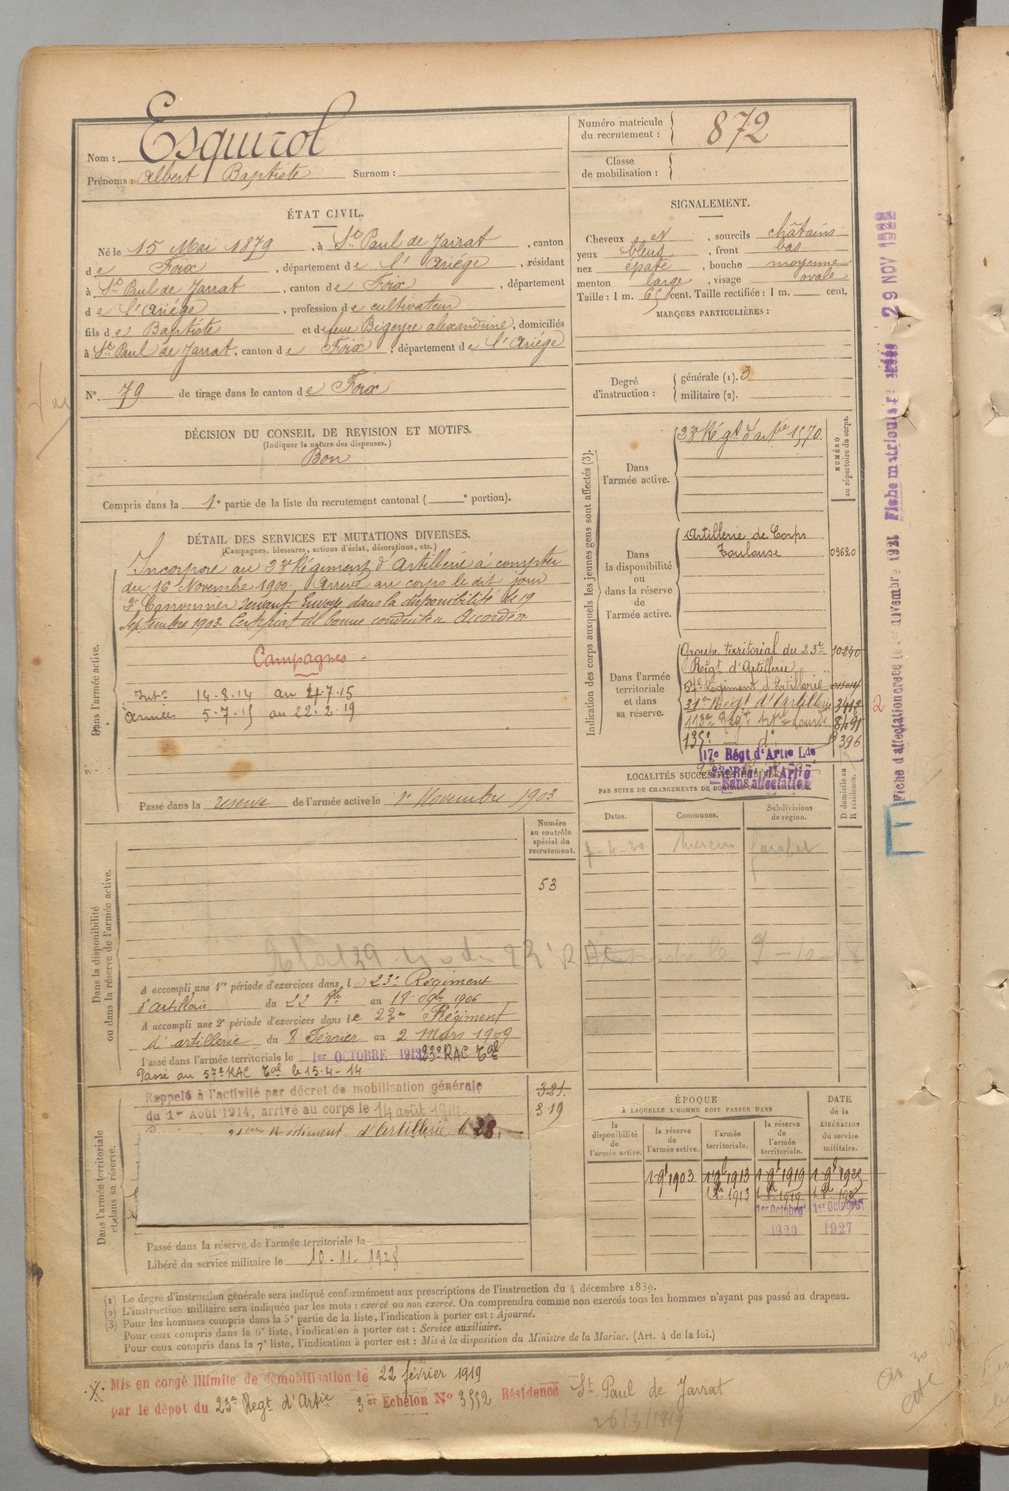 Nom : Esquirol
Prénoms : Albert Baptiste Surnom :
Numéro matricule du recrutement : 872
Classe de mobilisation :
ÉTAT CIVIL.
Né le 15 Mai 1879, à St Paul de Jarrat, canton
de Foix, département de l'Ariége, résidant
à St Paul de Jarrat, canton de Foix, département
de l'Ariége, profession de cultivateur
fils de Baptiste et de feue Bigeyre alexandrine, domiciliés
à St Paul de Jarrat, canton de Foix, département de l'Ariége
N° 79 de tirage dans le canton de Foix
DÉCISION DU CONSEIL DE REVISION ET MOTIFS.
(Indiquer la nature des dispenses.)
Bon
Compris dans la 1e partie de la liste du recrutement cantonal ( e portion).
SIGNALEMENT.
Cheveux et, sourcils châtains
yeux bleus, front bas
nez épaté, bouche moyenne
menton large, visage ovale
Taille : 1 m. 65 cent. Taille rectifiée : 1 m. cent.
MARQUES PARTICULIÈRES :
Degré d'instruction : générale (1). 3
militaire (2).
DÉTAIL DES SERVICES ET MUTATIONS DIVERSES.
(Campagnes, blessures, actions d'éclat, décorations, etc.)
Dans l'armée active.
Incorporé au 23e Régiment d'Artillerie à compter
du 16 Novembre 1900. Arrivé au corps le dit jour
2e Cannonier Envoyé dans la disponibilité le 19
Septembre 1903. Certificat de bonne conduite Accordé.
Campagnes -
Intre 14-8-14 au 4-7-15
Armées 5-7-15 au 22-2-19
Passé dans la reserve de l'armée active le 1er Novembre 1903
Indication des corps auxquels les jeunes gens sont affectés (3).
NUMÉRO au répertoire du corps.
Dans l'armée active.
23e Régt d'artie 1570
Dans la disponibilité ou dans la réserve de l'armée active.
Artillerie de Corps
Toulouse 09680
Dans l'armée territoriale et dans sa réserve.
Groupe territorial du 23e 10240
Régt d'Artillerie
57e Régiment d'Artillerie
31e Regt d'Artillerie 3412
113e Regt Artie Lourde 8491
135e do 396
117e Régt d'Artie Lde
23e Régt d'Artie
Sans affectation
2
LOCALITÉS SUCCES
PAR SUITE DE CHANGEMENTS DE DOMICILE
Dates. Communes. Subdivisions de région. D domicile ou R résidence.
Numéro au contrôle spécial du recrutement.
53
Dans la disponibilité ou dans la réserve de l'armée active.
A accompli une 1re période d'exercices dans le 23e Régiment
d'artillerie du 22 au 18 1906
A accompli une 2e période d'exercices dans le 23e Régiment
d'artillerie du 8 Février au 2 Mars 1909
Passé dans l'armée territoriale le 1er OCTOBRE 1913 23e RAC Tal
Passé au 57e RAC Tal le 15-4-14
Dans l'armée territoriale et dans sa réserve.
Rappelé à l'activité par décret de mobilisation générale
du 1er Août 1914, arrivé au corps le 14 août 1914
321.
319
Régiment d'Artillerie le 28
Passé dans la réserve de l'armée territoriale le
Libéré du service militaire le 10-11-1928
ÉPOQUE
À LAQUELLE L'HOMME DOIT PASSER DANS
DATE de la LIBÉRATION du service militaire.
la disponibilité de l'armée active. la réserve de l'armée active. l'armée territoriale. la réserve de l'armée territoriale.
1 9bre 1903 1 9bre 1913 1 9bre 1919
1913 1919
1er Octobre 1er Octobre
1920 1927
(1) Le degré d'instruction générale sera indiqué conformément aux prescriptions de l'instruction du 4 décembre 1889.
(2) L'instruction militaire sera indiquée par les mots : exercé ou non exercé. On comprendra comme non exercés tous les hommes n'ayant pas passé au drapeau.
(3) Pour les hommes compris dans la 5e partie de la liste, l'indication à porter est : Ajourné.
Pour ceux compris dans la 6e liste, l'indication à porter est : Service auxiliaire.
Pour ceux compris dans la 7e liste, l'indication à porter est : Mis à la disposition du Ministre de la Marine. (Art. 4 de la loi.)
Mis en congé illimité de démobilisation le 22 février 1919
par le dépôt du 23e Regt d'Artie 3er Echelon N° 3552 Résidence St Paul de Jarrat
26/3/1919